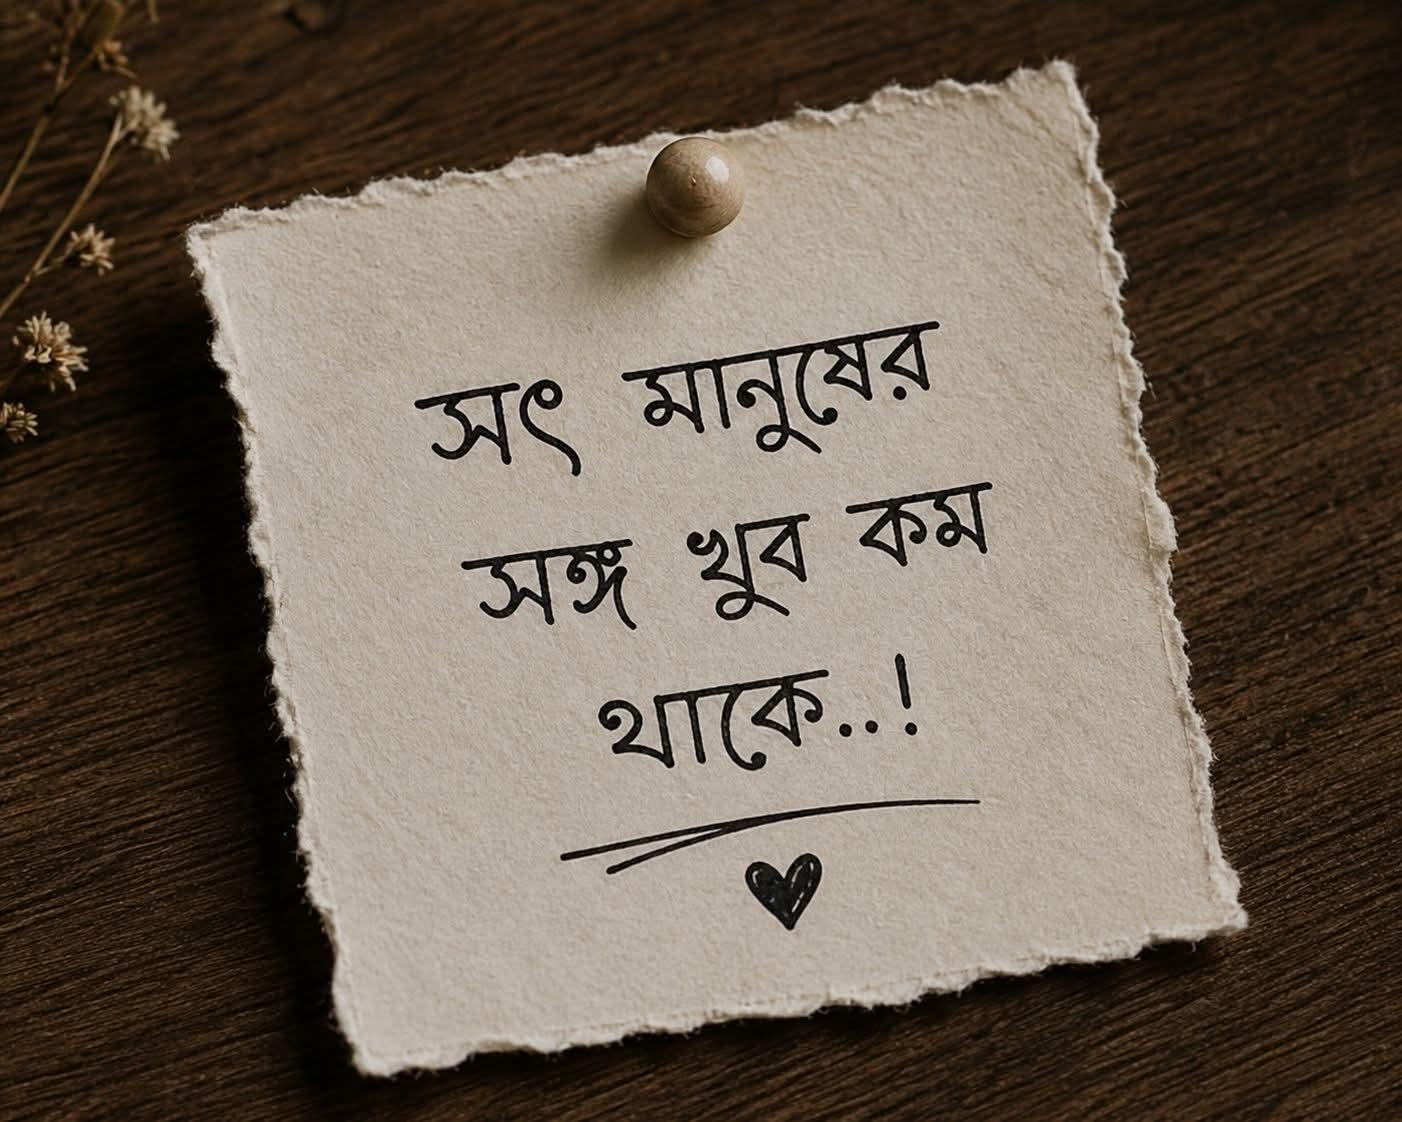 সৎ মানুষের
সঙ্গ খুব কম
থাকে..!